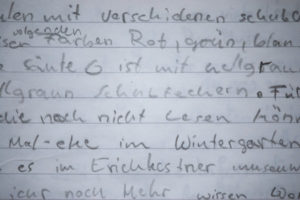 len mit verschidenen schubl
volgenden
sen Farben Rot, grün, blau
e Säule 6 ist mit hellgrau
llgraun Schubfechern. Für
die noch nicht lesen könn
Mal-eke im Wintergarten
es im Erichkestner museum
ihr noch Mehr wissen Wol